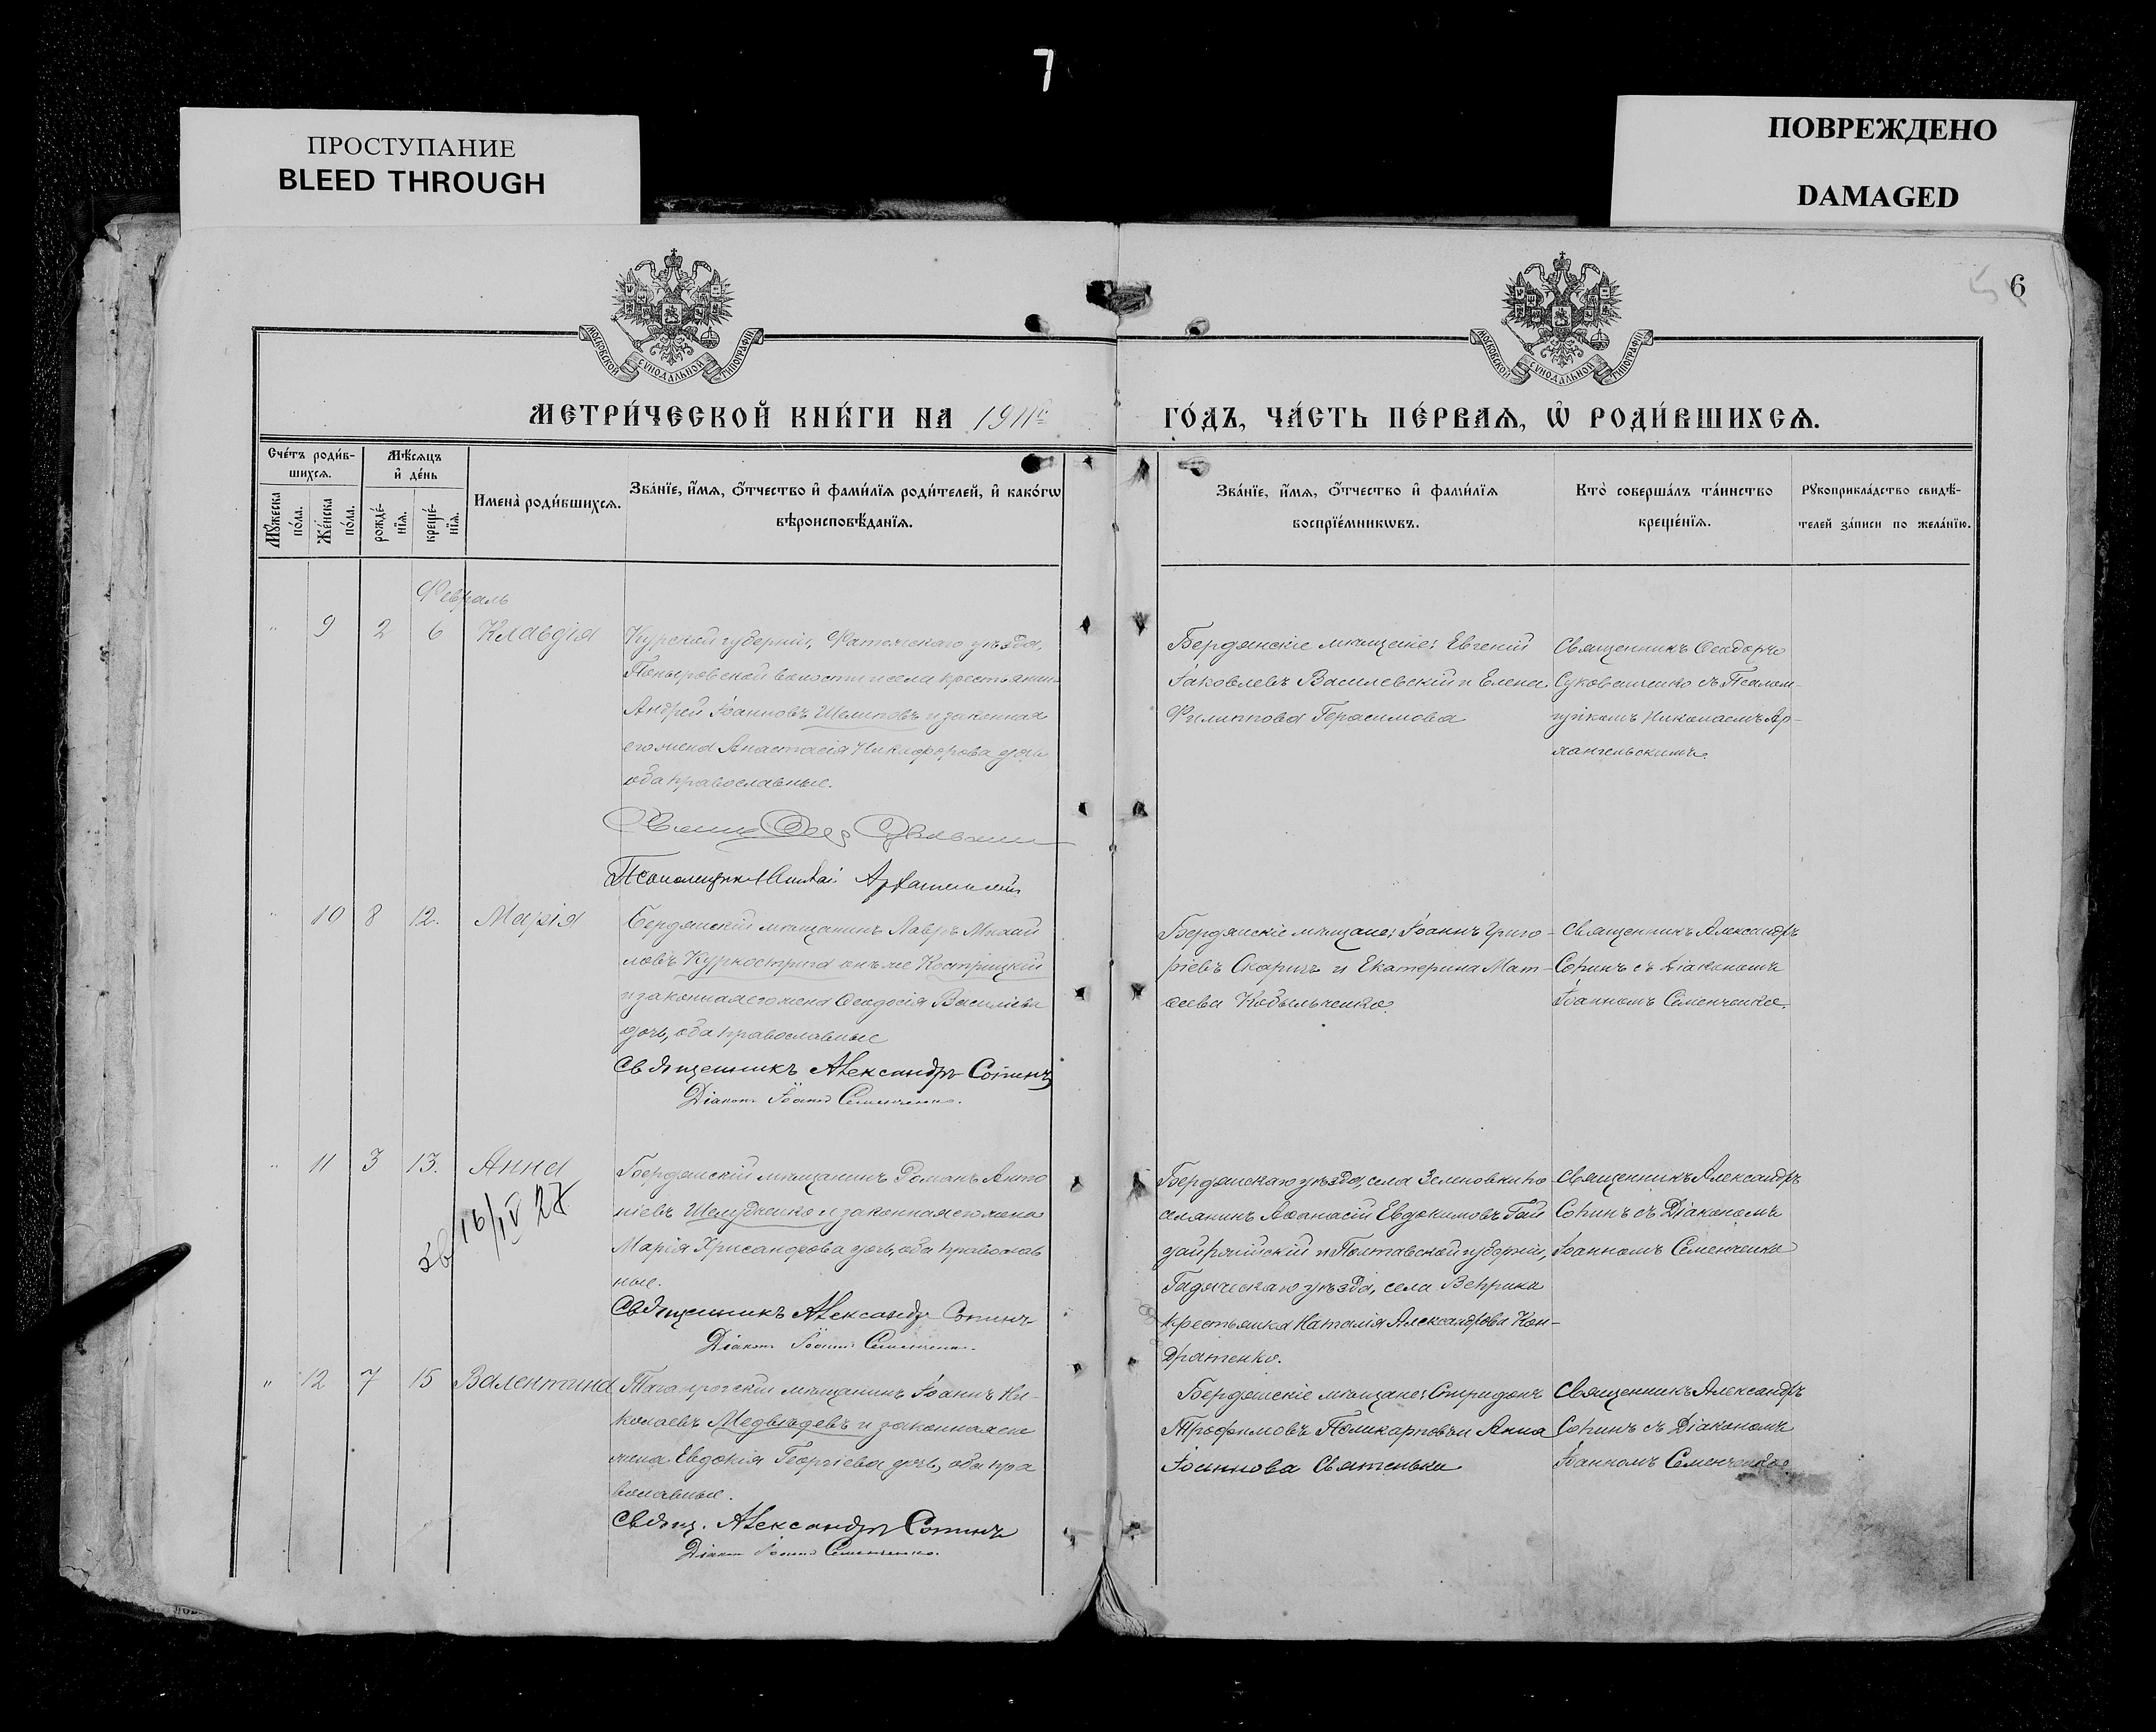 7
ПРОСТУПАНИЕ
BLEED THROUGH
ПОВРЕЖДЕНО
DAMAGED
6
МОСКОВСКОЙ СУНОДАЛЬНОЙ ТИПОГРАФІИ
МОСКОВСКОЙ СУНОДАЛЬНОЙ ТИПОГРАФІИ
МЕТРИ́ЧЕСКОЙ КНИ́ГИ НА 1911й
ГО́ДЪ, ЧА́СТЬ ПЕ́РВАѦ, Ѡ҆ РОДИ́ВШИХСѦ.
Сче́тъ роди́в-
шихсѧ.
Мꙋ́жеска по́ла.
Же́нска по́ла.
Мѣ́сѧцъ
и҆ де́нь
рожде́-нїѧ.
креще́-нїѧ.
Имена̀ роди́вшихсѧ.
Зва́нїе, и҆́мѧ, ѻ҆́тчество и҆ фами́лїѧ роди́телей, и҆ како́гѡ
вѣроисповѣ́данїѧ.
Зва́нїе, и҆́мѧ, ѻ҆́тчество и҆ фами́лїѧ
воспрїе́мникѡвъ.
Кто̀ соверша́лъ та́инство
креще́нїѧ.
Рꙋкоприкла́дство свидѣ́-
телей за́писи по жела́нїю.
Февраль
" 9 2 6 Клавдія
Курской губерніи, Фатежскаго уѣзда,
Поныровской волости и села крестьянин
Андрей Іоанновъ Шелиповъ и законная
его жена Анастасія Никифорова дочь
оба православные.
Псаломщикъ Николай Архангельскій
Бердянскіе мѣщане: Евгеній
Іаковлевъ Василевскій и Елена
Филиппова Герасимова
Священникъ Ѳеодоръ
съ Псалом-
щикомъ Николаемъ Ар-
хангельскимъ.
" 10 8 12. Марія
Бердянскій мѣщанинъ Лавръ Михай
ловъ Куркострига онъ же Кострицкій
и законная его жена Ѳеодосія Василіева
дочь, оба православные
Священникъ Александръ Сопинъ
Діаконъ Іоаннъ Семенченко.
Бердянскіе мѣщане: Іоаннъ Григо-
ріевъ Скаричъ и Екатерина Мат-
ѳеева Кобыльченко.
Священникъ Александръ
Сопинъ съ Діакономъ
Іоанномъ Семенченко.
" 11 3 13. Анна
16/IV 27
Бердянскій мѣщанинъ Романъ Анто
ніевъ Шелудченко и законная его жена
Марія Хрисанфова дочь, оба православ
ные.
Священникъ Александръ Сопинъ
Діаконъ Іоаннъ Семенченко.
Бердянскаго уѣзда, села Зеленовки по
селянинъ Аѳанасій Евдокимовъ Гай
и Полтавской губерніи,
Гадячскаго уѣзда, села Веприка
крестьянка Наталія Александрова Кон-
дратенко.
Священникъ Александръ
Сопинъ съ Діакономъ
Іоанномъ Семенченко
" 12 7 15 Валентина
Таганрогскій мѣщанинъ Іоаннъ Ни-
колаевъ Медвѣдевъ и законная его
жена Евдокія Георгіева дочь, оба пра
вославные.
Свящ. Александръ Сопинъ
Діаконъ Іоаннъ Семенченко.
Бердянскіе мѣщане: Спиридонъ
Трофимовъ Поликарповъ и Анна
Іоаннова Святенька
Священникъ Александръ
Сопинъ съ Діакономъ
Іоанномъ Семенченко.